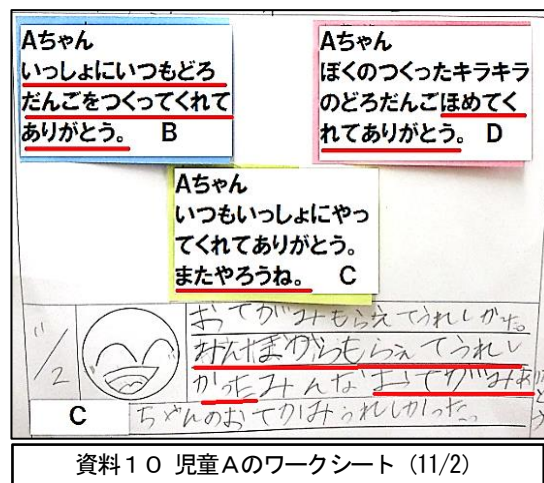 Aちゃん
いっしょにいつもどろ
だんごをつくってくれて
ありがとう。 B
Aちゃん
ぼくのつくったキラキラ
のどろだんごほめてく
れてありがとう。 D
Aちゃん
いつもいっしょにやっ
てくれてありがとう。
またやろうね。 C
11/2
おてがみもらえてうれしかった。
もらえてうれし
かったみんなおてがみあり
C ちゃんのおてがみうれしかった。
資料10 児童Aのワークシート (11/2)